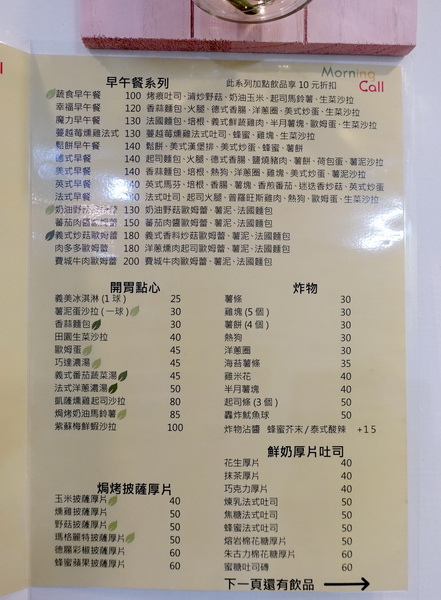 Morning
Call
早午餐系列 此系列加點飲品享 10 元折扣
蔬食早午餐 100 烤痕吐司、清炒野菇、奶油玉米、起司馬鈴薯、生菜沙拉
幸福早午餐 120 香蒜麵包、火腿、德式香腸、洋蔥圈、美式炒蛋、生菜沙拉
魔力早午餐 130 法國麵包、培根、美式鮮嫩雞肉、半月薯塊、歐姆蛋、生菜沙拉
蔓越莓燻雞法式 130 蔓越莓燻雞法式吐司、蜂蜜、雞塊、生菜沙拉
鬆餅早午餐 140 鬆餅、美式漢堡排、美式炒蛋、蜂蜜、薯餅
德式早餐 140 起司麵包、火腿、德式香腸、鹽燒豬肉、薯餅、荷包蛋、薯泥沙拉
美式早餐 140 香蒜麵包、培根、熱狗、洋蔥圈、雞塊、美式炒蛋、薯泥沙拉
英式早餐 140 英式瑪芬、培根、香腸、薯塊、香煎番茄、迷迭香炒菇、英式炒蛋
法式早餐 140 法式吐司、起司火腿、普羅旺斯雞肉、熱狗、歐姆蛋、生菜沙拉
奶油野菇 130 奶油野菇歐姆蕾、薯泥、法國麵包
番茄肉醬歐姆蕾 150 番茄肉醬歐姆蕾、薯泥、法國麵包
義式炒菇歐姆蕾 180 義式香料炒菇歐姆蕾、薯泥、法國麵包
肉多多歐姆蕾 180 洋蔥燻肉起司歐姆蕾、薯泥、法國麵包
費城牛肉歐姆蕾 200 費城牛肉歐姆蕾、薯泥、法國麵包
開胃點心
義美冰淇淋 (1 球) 25
薯泥蛋沙拉 (一球) 30
香蒜麵包 30
田園生菜沙拉 40
歐姆蛋 45
巧達濃湯 45
義式番茄蔬菜湯 45
法式洋蔥濃湯 50
凱薩燻雞起司沙拉 80
焗烤奶油馬鈴薯 85
紫蘇梅鮮蝦沙拉 100
炸物
薯條 30
雞塊 (5 個) 30
薯餅 (4 個) 30
熱狗 30
洋蔥圈 30
海苔薯條 35
雞米花 40
半月薯塊 40
起司條 (3 個) 50
轟炸魷魚球 50
炸物沾醬 蜂蜜芥末 / 泰式酸辣 +15
焗烤披薩厚片
玉米披薩厚片 40
燻雞披薩厚片 50
野菇披薩厚片 50
瑪格麗特披薩厚片 50
德腸彩椒披薩厚片 60
蜂蜜蘋果披薩厚片 60
鮮奶厚片吐司
花生厚片 40
抹茶厚片 40
巧克力厚片 40
煉乳法式吐司 50
焦糖法式吐司 50
蜂蜜法式吐司 50
熔岩棉花糖厚片 50
朱古力棉花糖厚片 60
蜜糖吐司磚 60
下一頁還有飲品